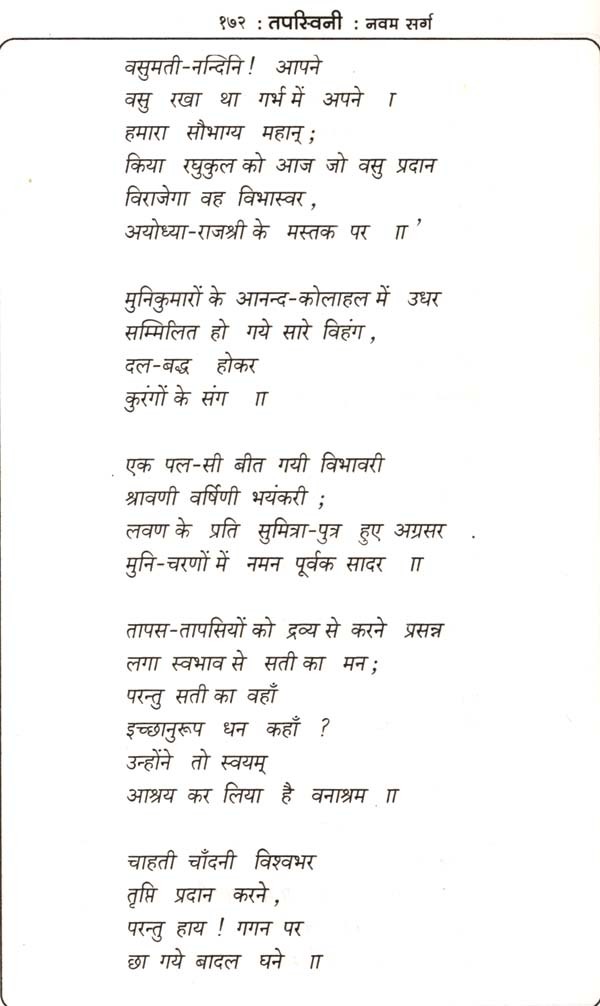 १७२ : तपस्विनी : नवम सर्ग
वसुमती-नन्दिनि ! आपने
वसु रखा था गर्भ में अपने ।
हमारा सौभाग्य महान् ;
किया रघुकुल को आज जो वसु प्रदान
विराजेगा वह विभास्वर ,
अयोध्या-राजश्री के मस्तक पर ॥ '
मुनिकुमारों के आनन्द-कोलाहल में उधर
सम्मिलित हो गये सारे विहंग ,
दल-बद्ध होकर
कुरंगों के संग ॥
एक पल-सी बीत गयी विभावरी
श्रावणी वर्षिणी भयंकरी ;
लवण के प्रति सुमित्रा-पुत्र हुए अग्रसर .
मुनि-चरणों में नमन पूर्वक सादर ॥
तापस-तापसियों को द्रव्य से करने प्रसन्न
लगा स्वभाव से सती का मन ;
परन्तु सती का वहाँ
इच्छानुरूप धन कहाँ ?
उन्होंने तो स्वयम्
आश्रय कर लिया है वनाश्रम ॥
चाहती चाँदनी विश्वभर
तृप्ति प्रदान करने ,
परन्तु हाय ! गगन पर
छा गये बादल घने ॥